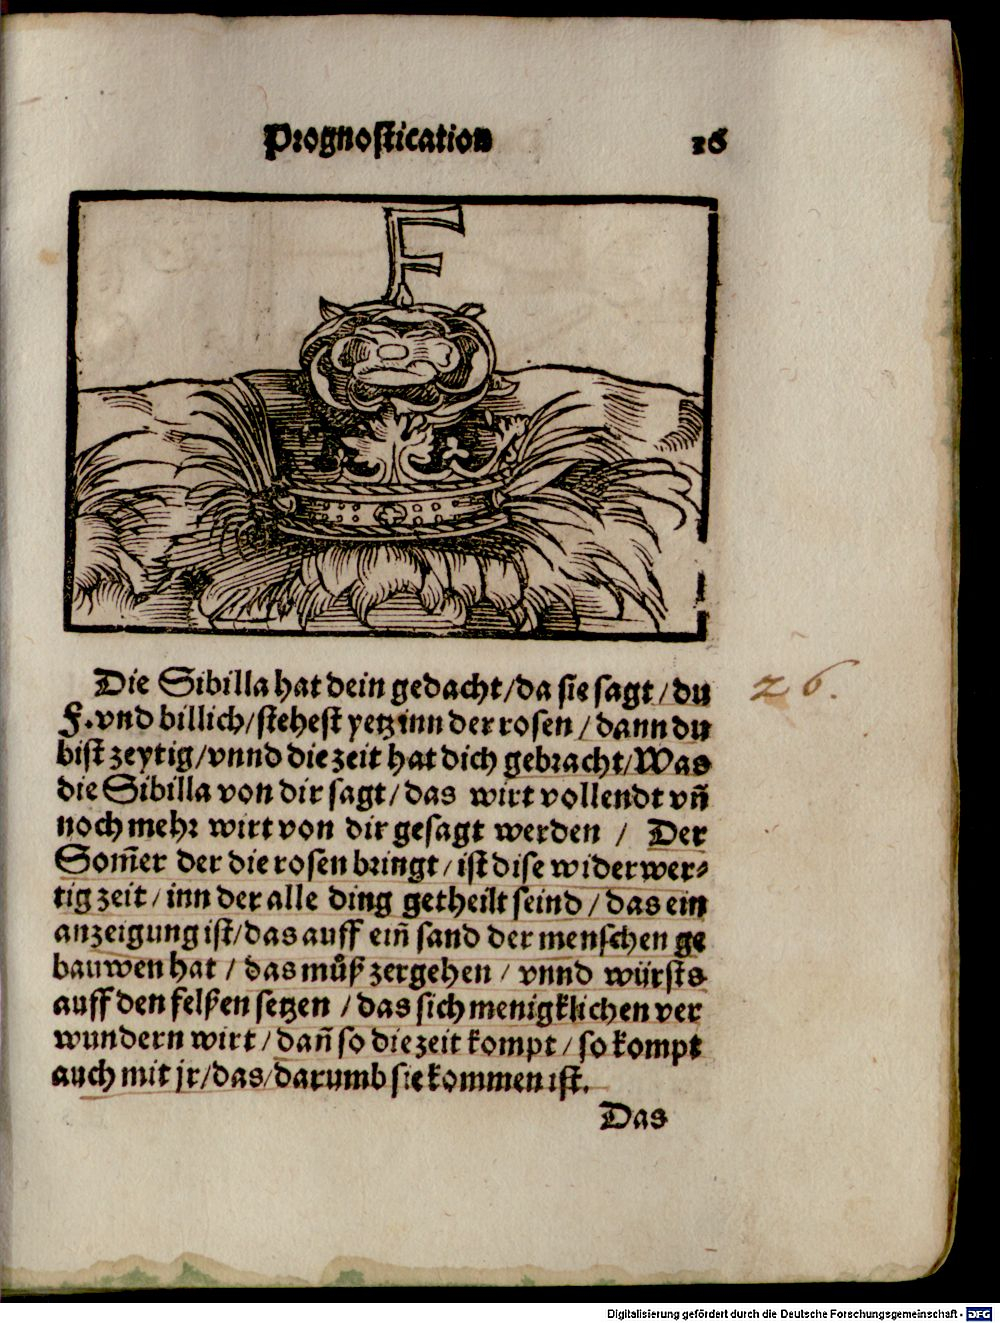 Prognostication 16
F
Die Sibilla hat dein gedacht/da sie sagt/du
F.vnd billich/stehest yetz inn der rosen/dann du
bist zeytig/vnnd die zeit hat dich gebracht/Was
die Sibilla von dir sagt/das wirt vollendt vñ
noch mehr wirt von dir gesagt werden / Der
Som̃er der die rosen bringt/ist dise widerwer⸗
tig zeit/inn der alle ding getheilt seind/das ein
anzeigung ist/das auff eiñ sand der menschen ge
bauwen hat / das můß zergehen / vnnd würsts
auff den felßen setzen /das sich menigklichen ver
wundern wirt/dañ so die zeit kompt/so kompt
auch mit jr/das/darumb sie kommen ist.
Das
26.
Digitalisierung gefördert durch die Deutsche Forschungsgemeinschaft - DFG